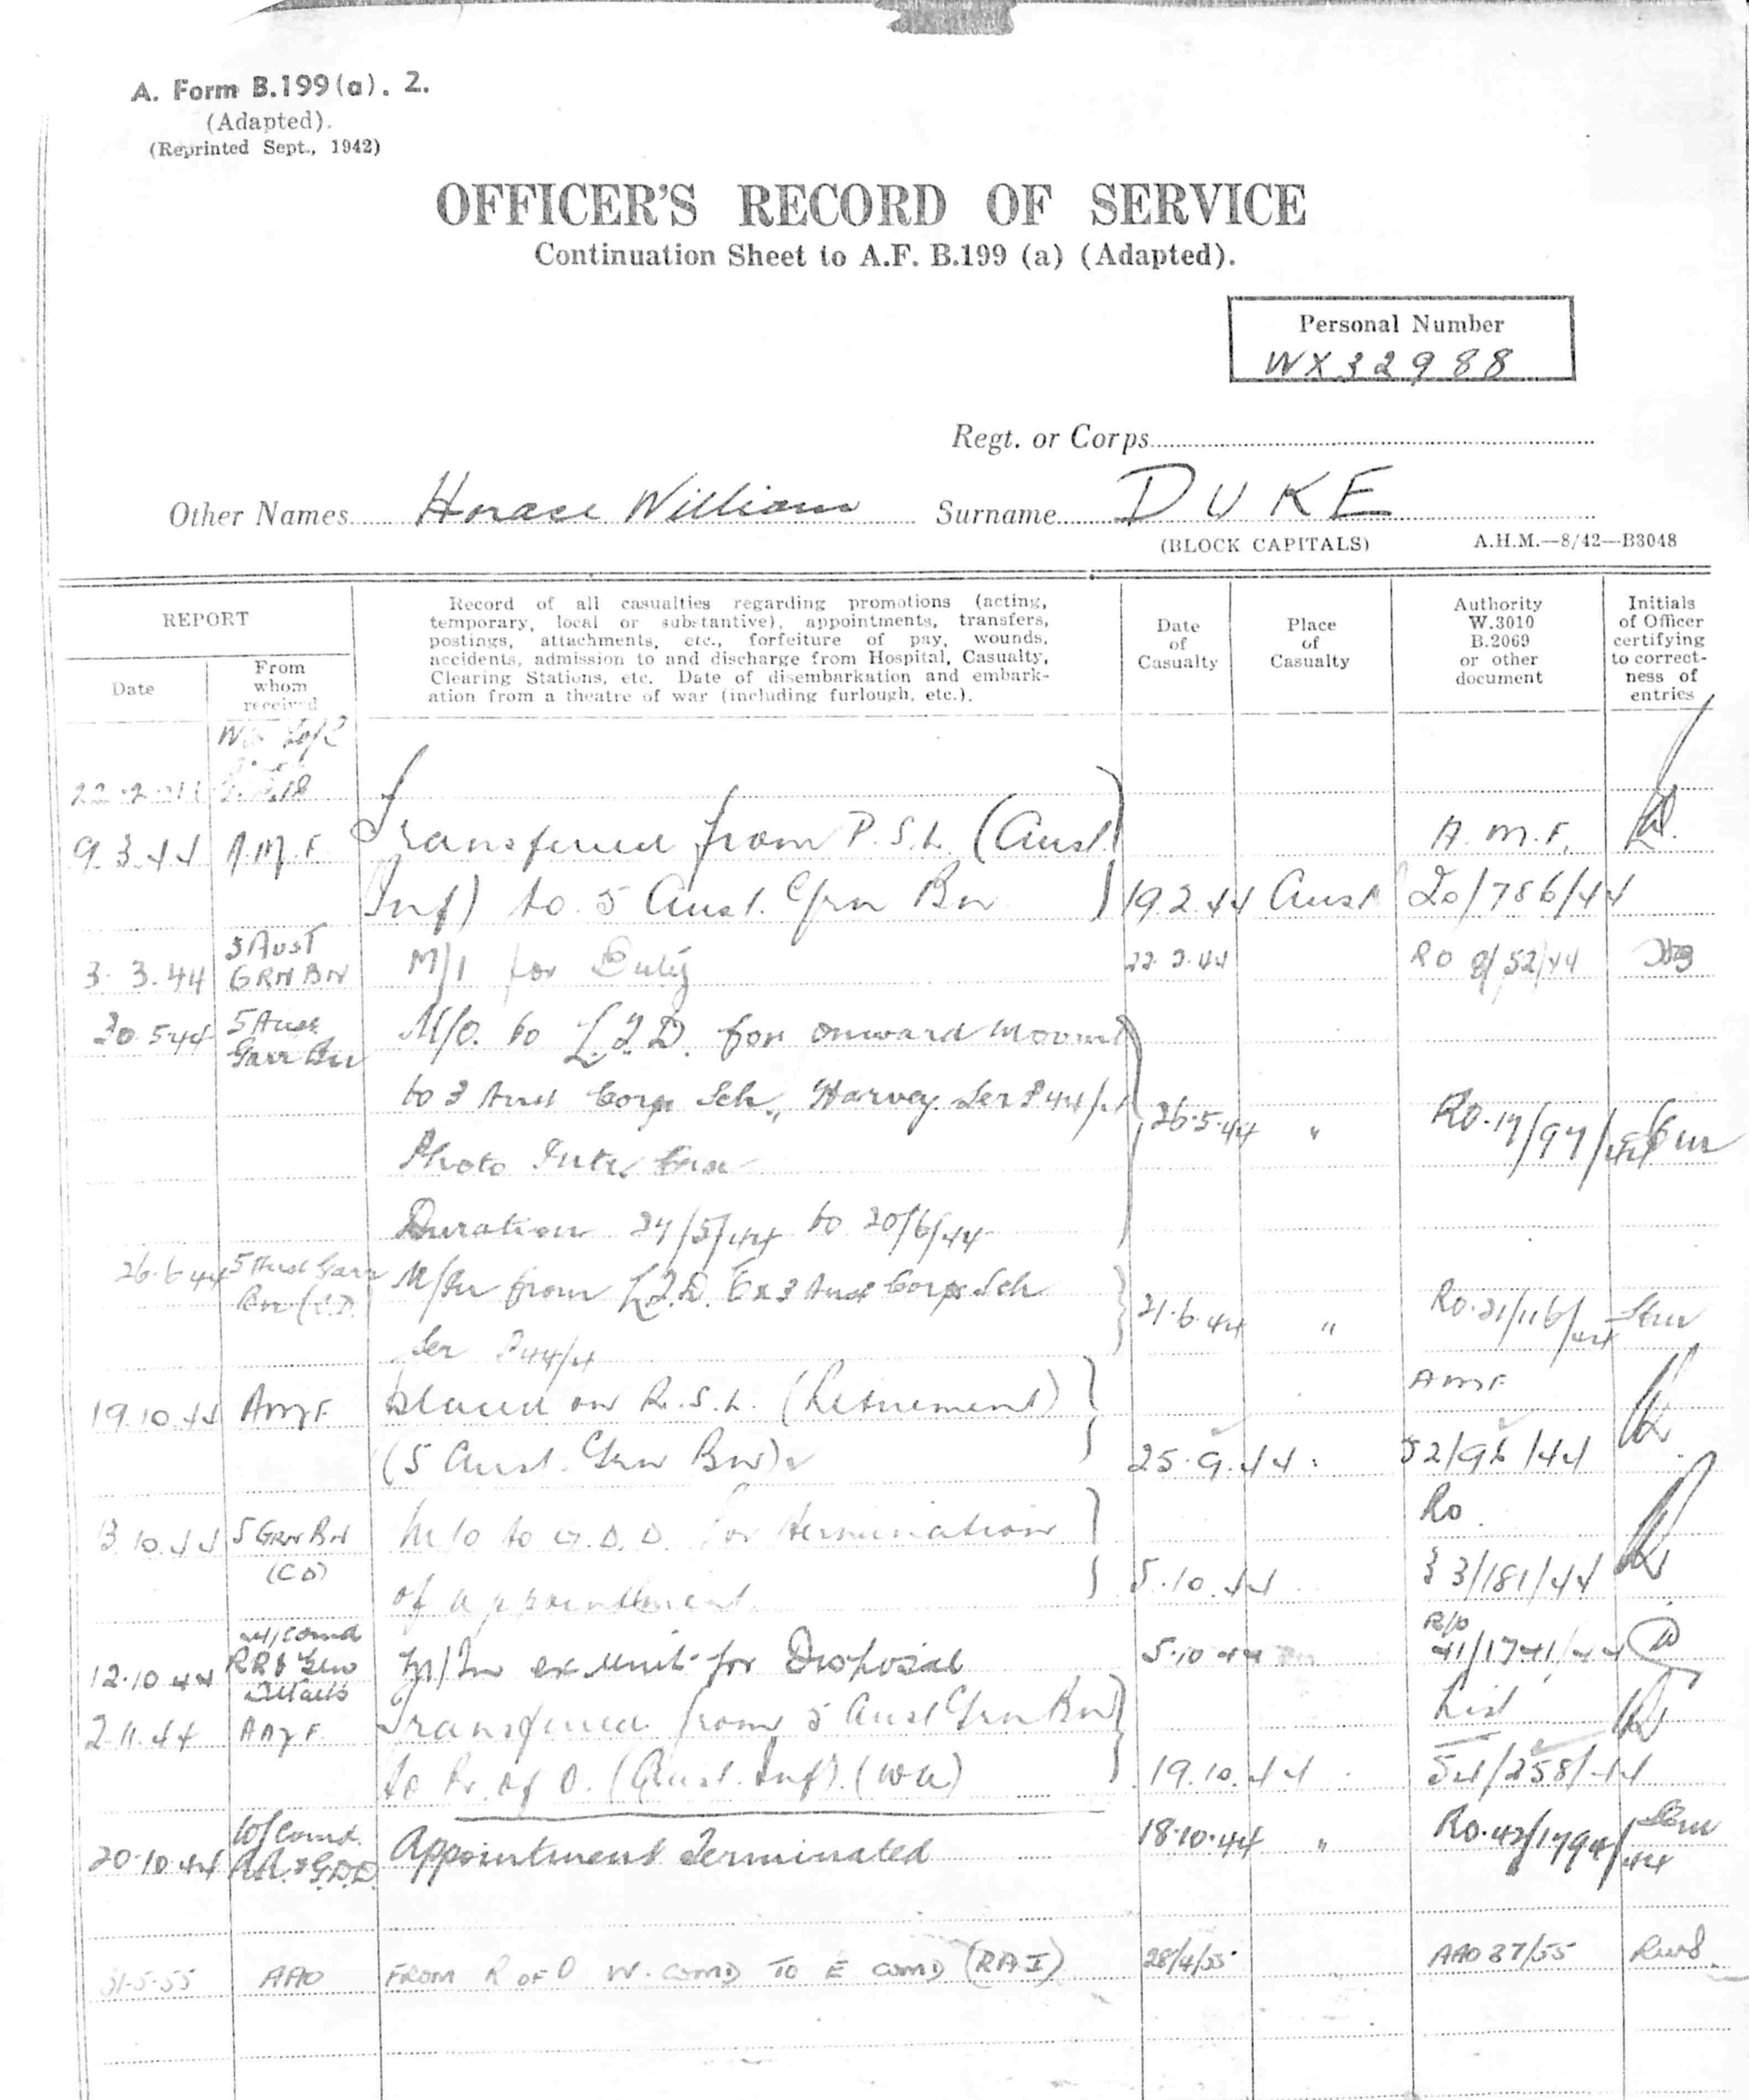 A. Form B.199(a). 2.
(Adapted).
(Reprinted Sept., 1942)
OFFICER'S RECORD OF SERVICE
Continuation Sheet to A.F. B.199 (a) (Adapted).
Personal Number
WX32988
Regt. or Corps
Other Names Horace William Surname DUKE
(BLOCK CAPITALS) A.H.M.—8/42—B3048
REPORT
Date
From
whom
received
Record of all casualties regarding promotions (acting,
temporary, local or substantive), appointments, transfers,
postings, attachments, etc., forfeiture of pay, wounds,
accidents, admission to and discharge from Hospital, Casualty,
Clearing Stations, etc. Date of disembarkation and embark-
ation from a theatre of war (including furlough, etc.).
Date
of
Casualty
Place
of
Casualty
Authority
W.3010
B.2069
or other
document
Initials
of Officer
certifying
to correct-
ness of
entries
9.3.44 A.M.F. Transferred from (Aust. A.M.F.
Inf) to 5 Aust. Grn Bn 19.2.44 Aust 20/786/44
3.3.44 5 AUST GRN BN M/I for Duty 22.2.44 RO 9/52/44
30.5.44 5 Aust Garr Bn M/O. to L.T.D. for onward movmt
to 3 Aust Corps Sch., Harvey. Ser 26.5.44 " RO.17/97/44
Photo Intr.
Duration 24/5/44 to 20/6/44
26.6.44 5 Aust Garr Bn M/In from L.T.D. Ex 3 Aust Corps Sch 21.6.44 " RO.21/116/44
Ser
19.10.44 AMF. Placed on R.S.L. (Retirement) AMF
(5 Aust. Grn Bn) 25.9.44 52/96/44
13.10.44 5 GRN BN M/O to G.D.D. for termination RO
(CD) of appointment 5.10.44 33/181/44
12.10.44 W/Comd RR & Gen Details M/In ex unit for Disposal 5.10.44 R/O 41/1741/44
2.11.44 AMF. Transferred from 5 Aust Grn Bn List
to R. of O. (Aust. Inf). (WA) 19.10.44 54/258/44
20.10.44 W/Comd. RR. & G.D.D. Appointment Terminated 18.10.44 " RO.42/1794/44
31.5.55 AAO FROM R OF O W. COMD TO E COMD (RAI) 28/4/55 AAO 37/55